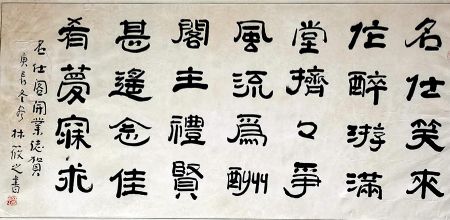 名仕笑來
作醉游滿
堂擠々爭
風流爲酬
閣主禮賢
甚遙念佳
肴夢寐求
名仕阁開業誌賀
庚辰冬林筱之書